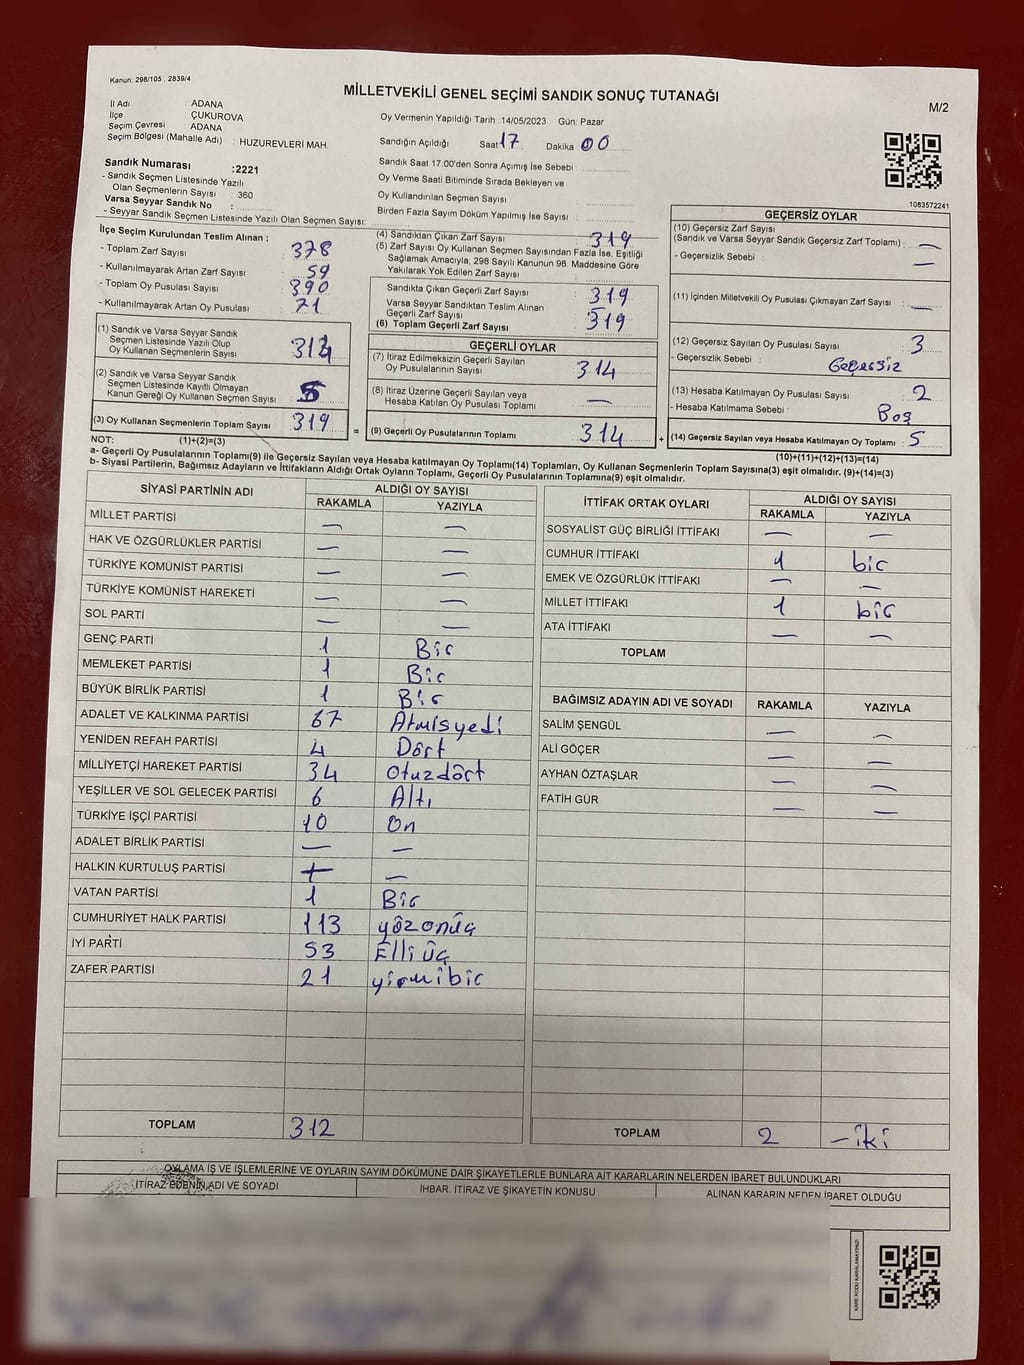 Kanun: 298/105 , 2839/4
MİLLETVEKİLİ GENEL SEÇİMİ SANDIK SONUÇ TUTANAĞI
M/2
İl Adı ADANA
İlçe ÇUKUROVA
Seçim Çevresi : ADANA
Seçim Bölgesi (Mahalle Adı) : HUZUREVLERİ MAH.
Sandık Numarası :2221
- Sandık Seçmen Listesinde Yazılı
Olan Seçmenlerin Sayısı : 360
Varsa Seyyar Sandık No :
- Seyyar Sandık Seçmen Listesinde Yazılı Olan Seçmen Sayısı:
Oy Vermenin Yapıldığı Tarih : 14/05/2023 Gün: Pazar
Sandığın Açıldığı Saat 17 Dakika 00
Sandık Saat 17.00'den Sonra Açımış İse Sebebi :
Oy Verme Saati Bitiminde Sırada Bekleyen ve
Oy Kullandırılan Seçmen Sayısı :
Birden Fazla Sayım Döküm Yapılmış İse Sayısı :
1083572241
İlçe Seçim Kurulundan Teslim Alınan ;
- Toplam Zarf Sayısı : 378
- Kullanılmayarak Artan Zarf Sayısı : 59
- Toplam Oy Pusulası Sayısı : 390
- Kullanılmayarak Artan Oy Pusulası : 71
(1) Sandık ve Varsa Seyyar Sandık
Seçmen Listesinde Yazılı Olup
Oy Kullanan Seçmenlerin Sayısı : 314
(2) Sandık ve Varsa Seyyar Sandık
Seçmen Listesinde Kayıtlı Olmayan
Kanun Gereği Oy Kullanan Seçmen Sayısı : 5
(3) Oy Kullanan Seçmenlerin Toplam Sayısı : 319
(4) Sandıktan Çıkan Zarf Sayısı : 319
(5) Zarf Sayısı Oy Kullanan Seçmen Sayısından Fazla İse, Eşitliği
Sağlamak Amacıyla, 298 Sayılı Kanunun 98. Maddesine Göre
Yakılarak Yok Edilen Zarf Sayısı :
Sandıkta Çıkan Geçerli Zarf Sayısı : 319
Varsa Seyyar Sandıktan Teslim Alınan
Geçerli Zarf Sayısı : —
(6) Toplam Geçerli Zarf Sayısı : 319
GEÇERLİ OYLAR
(7) İtiraz Edilmeksizin Geçerli Sayılan
Oy Pusulalarının Sayısı : 314
(8) İtiraz Üzerine Geçerli Sayılan veya
Hesaba Katılan Oy Pusulası Toplamı : —
= (9) Geçerli Oy Pusulalarının Toplamı : 314 +
GEÇERSİZ OYLAR
(10) Geçersiz Zarf Sayısı
(Sandık ve Varsa Seyyar Sandık Geçersiz Zarf Toplamı) : —
- Geçersizlik Sebebi : —
(11) İçinden Milletvekili Oy Pusulası Çıkmayan Zarf Sayısı : —
(12) Geçersiz Sayılan Oy Pusulası Sayısı : 3
- Geçersizlik Sebebi : Geçersiz
(13) Hesaba Katılmayan Oy Pusulası Sayısı : 2
- Hesaba Katılmama Sebebi : Boş
(14) Geçersiz Sayılan veya Hesaba Katılmayan Oy Toplamı : 5
NOT: (1)+(2)=(3) (10)+(11)+(12)+(13)=(14)
a- Geçerli Oy Pusulalarının Toplamı(9) ile Geçersiz Sayılan veya Hesaba katılmayan Oy Toplamı(14) Toplamları, Oy Kullanan Seçmenlerin Toplam Sayısına(3) eşit olmalıdır. (9)+(14)=(3)
b- Siyasi Partilerin, Bağımsız Adayların ve İttifakların Aldığı Ortak Oyların Toplamı, Geçerli Oy Pusulalarının Toplamına(9) eşit olmalıdır.
SİYASİ PARTİNİN ADI ALDIĞI OY SAYISI
RAKAMLA YAZIYLA
MİLLET PARTİSİ — —
HAK VE ÖZGÜRLÜKLER PARTİSİ — —
TÜRKİYE KOMÜNİST PARTİSİ — —
TÜRKİYE KOMÜNİST HAREKETİ — —
SOL PARTİ — —
GENÇ PARTİ 1 Bir
MEMLEKET PARTİSİ 1 Bir
BÜYÜK BİRLİK PARTİSİ 1 Bir
ADALET VE KALKINMA PARTİSİ 67 Atmışyedi
YENİDEN REFAH PARTİSİ 4 Dört
MİLLİYETÇİ HAREKET PARTİSİ 34 Otuzdört
YEŞİLLER VE SOL GELECEK PARTİSİ 6 Altı
TÜRKİYE İŞÇİ PARTİSİ 10 On
ADALET BİRLİK PARTİSİ — —
HALKIN KURTULUŞ PARTİSİ — —
VATAN PARTİSİ 1 Bir
CUMHURİYET HALK PARTİSİ 113 yözonüç
İYİ PARTİ 53 Elli üç
ZAFER PARTİSİ 21 yirmibir
TOPLAM 312
İTTİFAK ORTAK OYLARI ALDIĞI OY SAYISI
RAKAMLA YAZIYLA
SOSYALİST GÜÇ BİRLİĞİ İTTİFAKI — —
CUMHUR İTTİFAKI 1 bir
EMEK VE ÖZGÜRLÜK İTTİFAKI — —
MİLLET İTTİFAKI 1 bir
ATA İTTİFAKI — —
TOPLAM
BAĞIMSIZ ADAYIN ADI VE SOYADI RAKAMLA YAZIYLA
SALİM ŞENGÜL — —
ALİ GÖÇER — —
AYHAN ÖZTAŞLAR — —
FATİH GÜR — —
TOPLAM 2 – iki
OYLAMA İŞ VE İŞLEMLERİNE VE OYLARIN SAYIM DÖKÜMÜNE DAİR ŞİKAYETLERLE BUNLARA AİT KARARLARIN NELERDEN İBARET BULUNDUKLARI
İTİRAZ EDENİN ADI VE SOYADI İHBAR, İTİRAZ VE ŞİKAYETİN KONUSU ALINAN KARARIN NEDEN İBARET OLDUĞU
KARE KODU KARALAMAYINIZ!